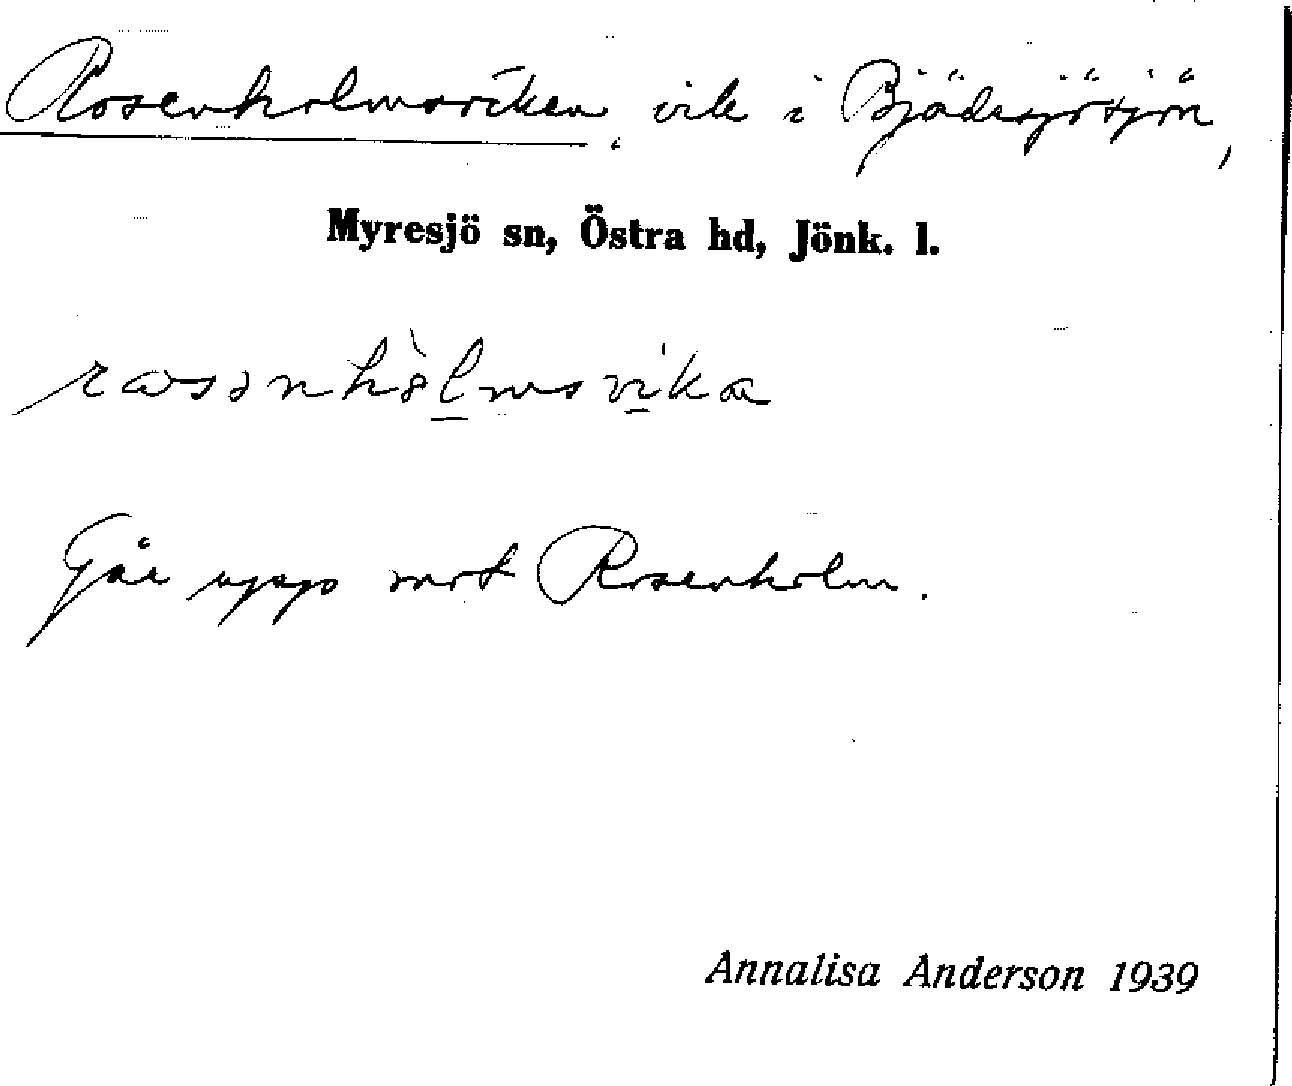 Rosenholmsviken, vik i Bjädesjösjön,
Myresjö sn, Östra hd, Jönk. l.
Går upp mot Rosenholm.
Annalisa Anderson 1939